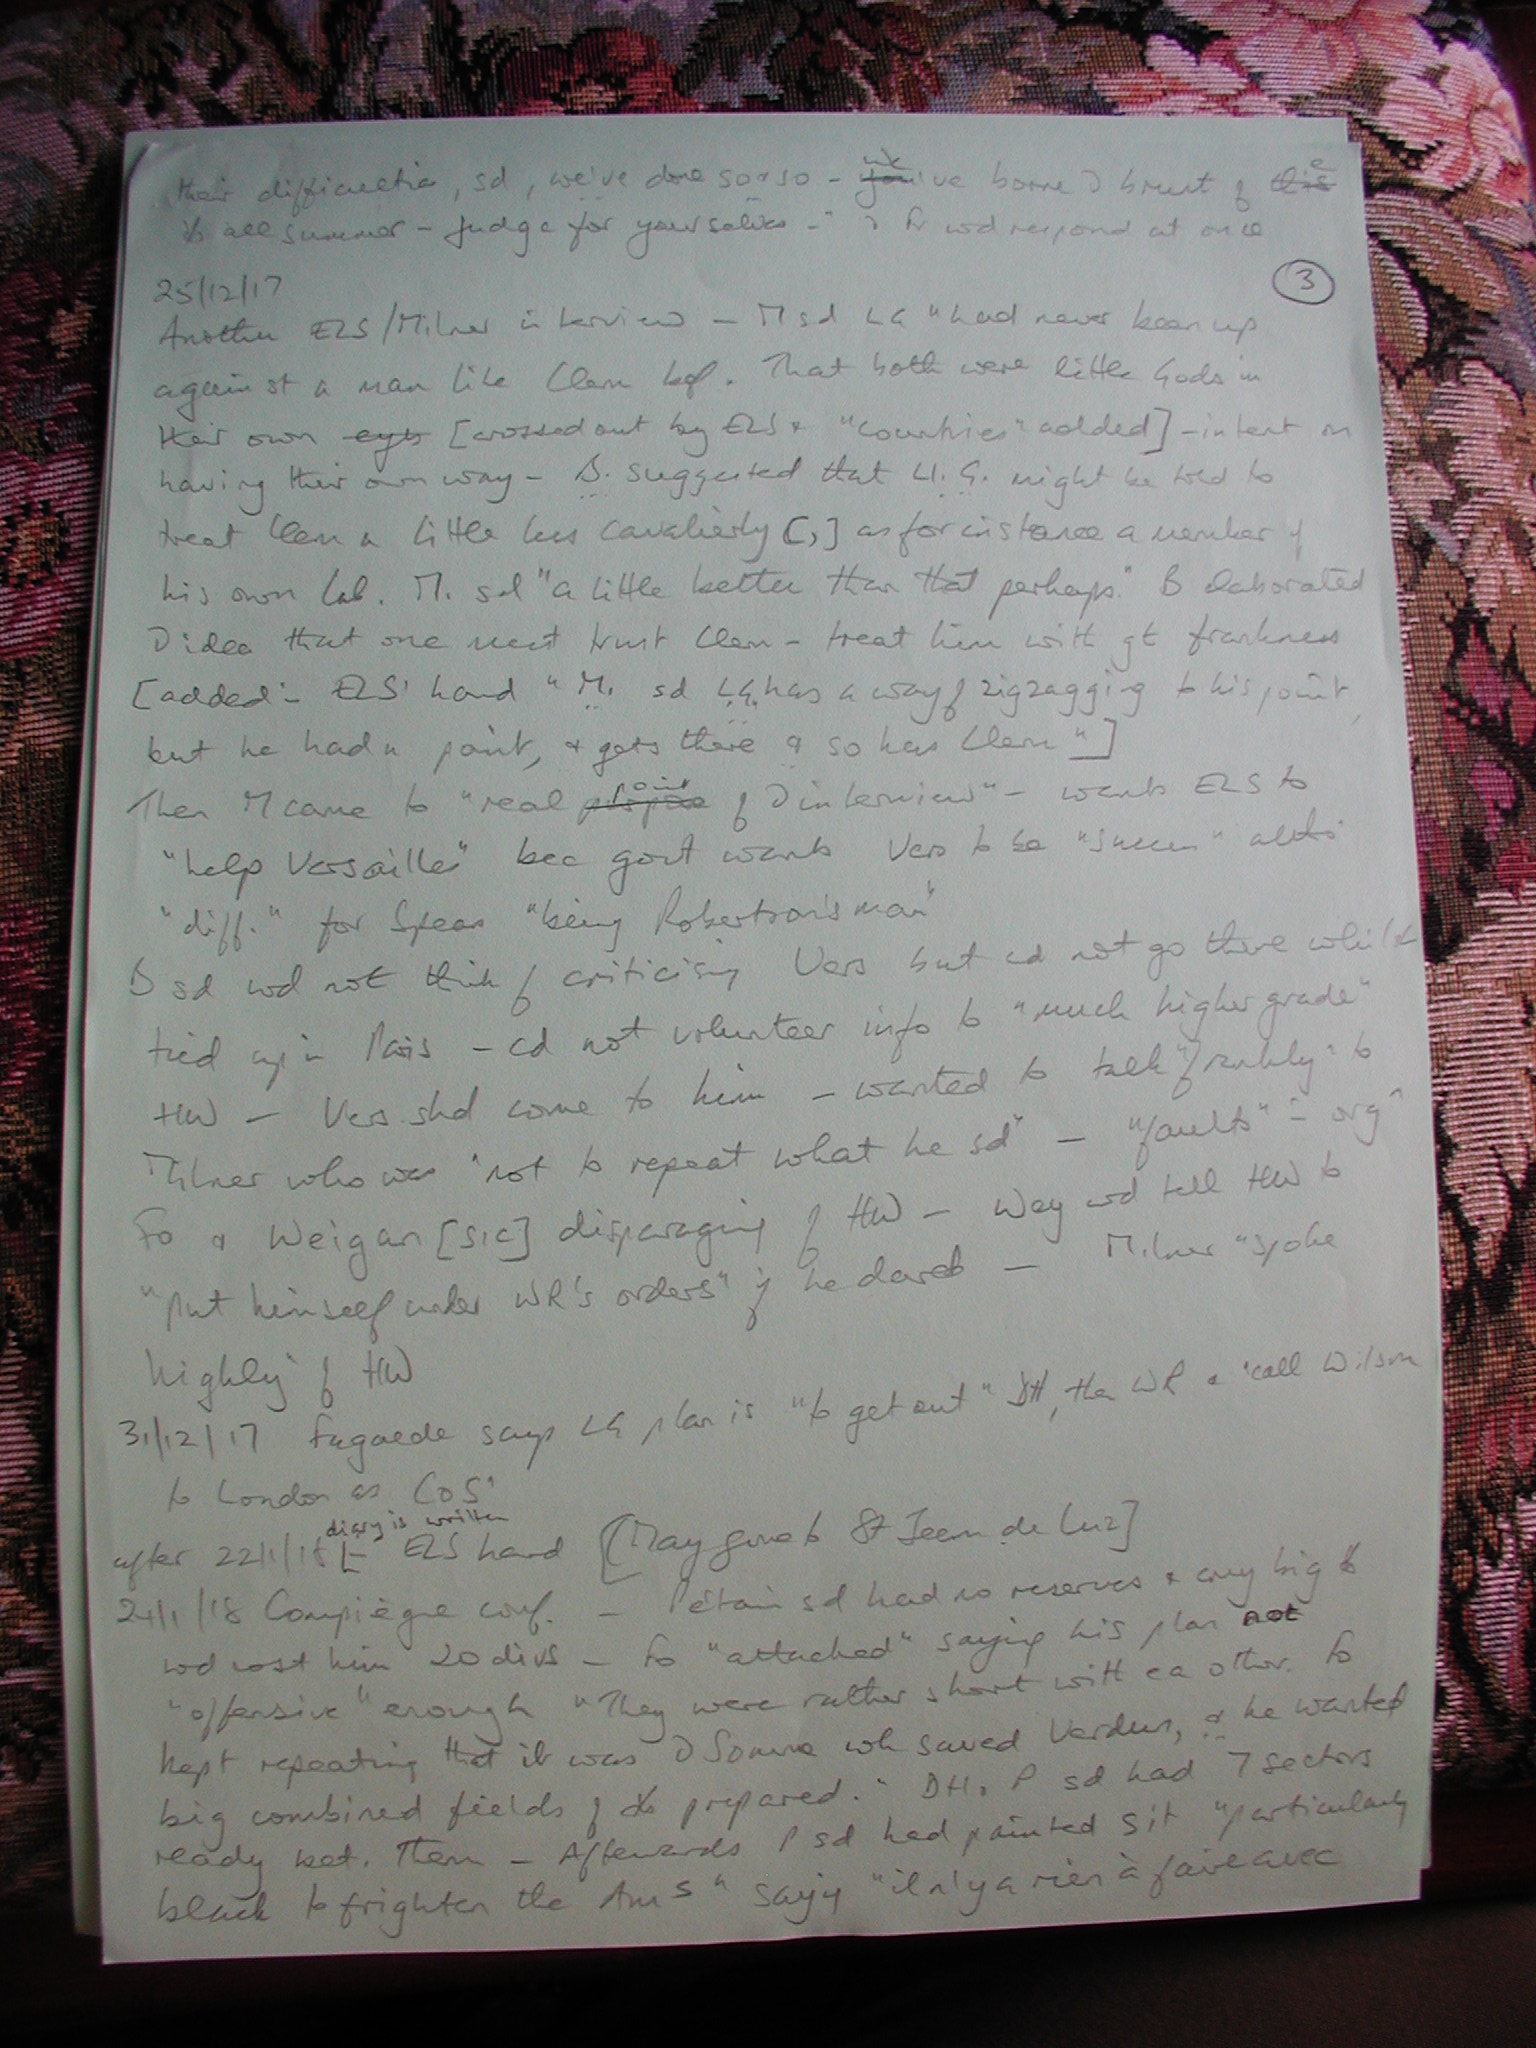 their difficulties, sd, we've done so & so - ~~you~~ we've borne ? brunt of ~~this~~
all summer - judge for yourselves - " ? Fr wd respond at once
3
25/12/17
Another ELS/Milner interview - M sd LG "had never been up
against a man like Clem bef. That both were little Gods in
their own ~~eyes~~ [crossed out by ELS & "countries" added] - intent on
having their own way - B. suggested that Ll. G. might be told to
treat Clem a little less cavalierly [,] as for instance a member of
his own Cab. M. sd "a little better than that perhaps." B elaborated
? idea that one must trust Clem - treat him with gt frankness
[added - ELS' hand "M. sd LG has a way of zigzagging to his point,
but he had a point, & gets there & so has Clem"]
Then M came to "real ~~purpose~~ point of ? interview" - wants ELS to
"help Versailles" bec govt wants Vers to be "success"
"diff." for Spears "being Robertson's man"
B sd wd not think of criticising Vers but cd not go there whilst
tied up in Paris - cd not volunteer info to "much higher grade"
HW - Vers shd come to him - wanted to talk "frankly" to
Milner who was "not to repeat what he sd" - "faults" - org
Fo & Weigan [sic] disparaging of HW - Weyg wd tell HW to
"put himself under WR's orders" if he dared - Milner "spoke
highly" of HW
31/12/17 Fagalde says LG plan is "to get out" DH, then WR & "call Wilson
to London as CoS"
after 22/1/18 [- diary is written ELS hand [May gone to St Jean de Luz]
24/1/18 Compiègne conf. - Pétain sd had no reserves & any big
wd cost him 20 divs - Fo "attacked" saying his plan not
"offensive" enough "They were rather short with ea other. Fo
kept repeating that it was ? Somme wh saved Verdun, & he wanted
big combined fields of prepared." DH & P sd had 7 sectors
ready bet. them - Afterwards P sd had painted sit "particularly
black to frighten the Ams" saying "il n'y a rien à faire avec